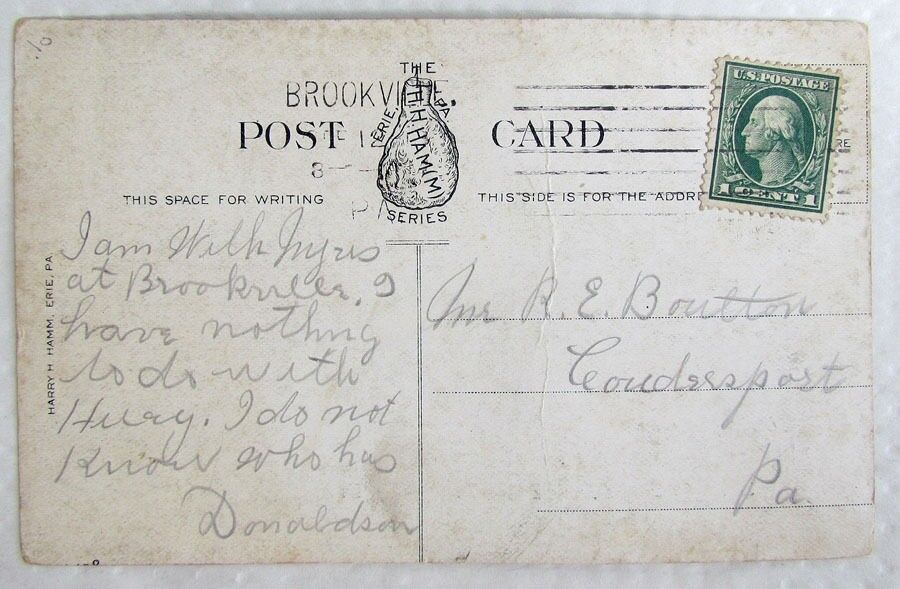 THE
BROOKVILLE,
ERIE, PA
H. H. HAMM
POST CARD
12
8
THIS SPACE FOR WRITING
SERIES
THIS SIDE IS FOR THE ADDRE
U.S. POSTAGE
1 CENT 1
RE
HARRY H HAMM, ERIE, PA.
I am With
at Brookville. I
have nothing
to do with
I do not
Know who has
Donaldson
Mr R. E. Boutton
Coudersport
Pa.